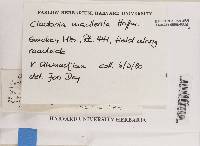 FARLOW HERBARIUM, HARVARD UNIVERSITY
Cladonia
Smokey Mts., Rt. 441, field along
roadside
V. Ahmadjian coll. 6/2/80
det. Jon Dey
HARVARD UNIVERSITY HERBARIA